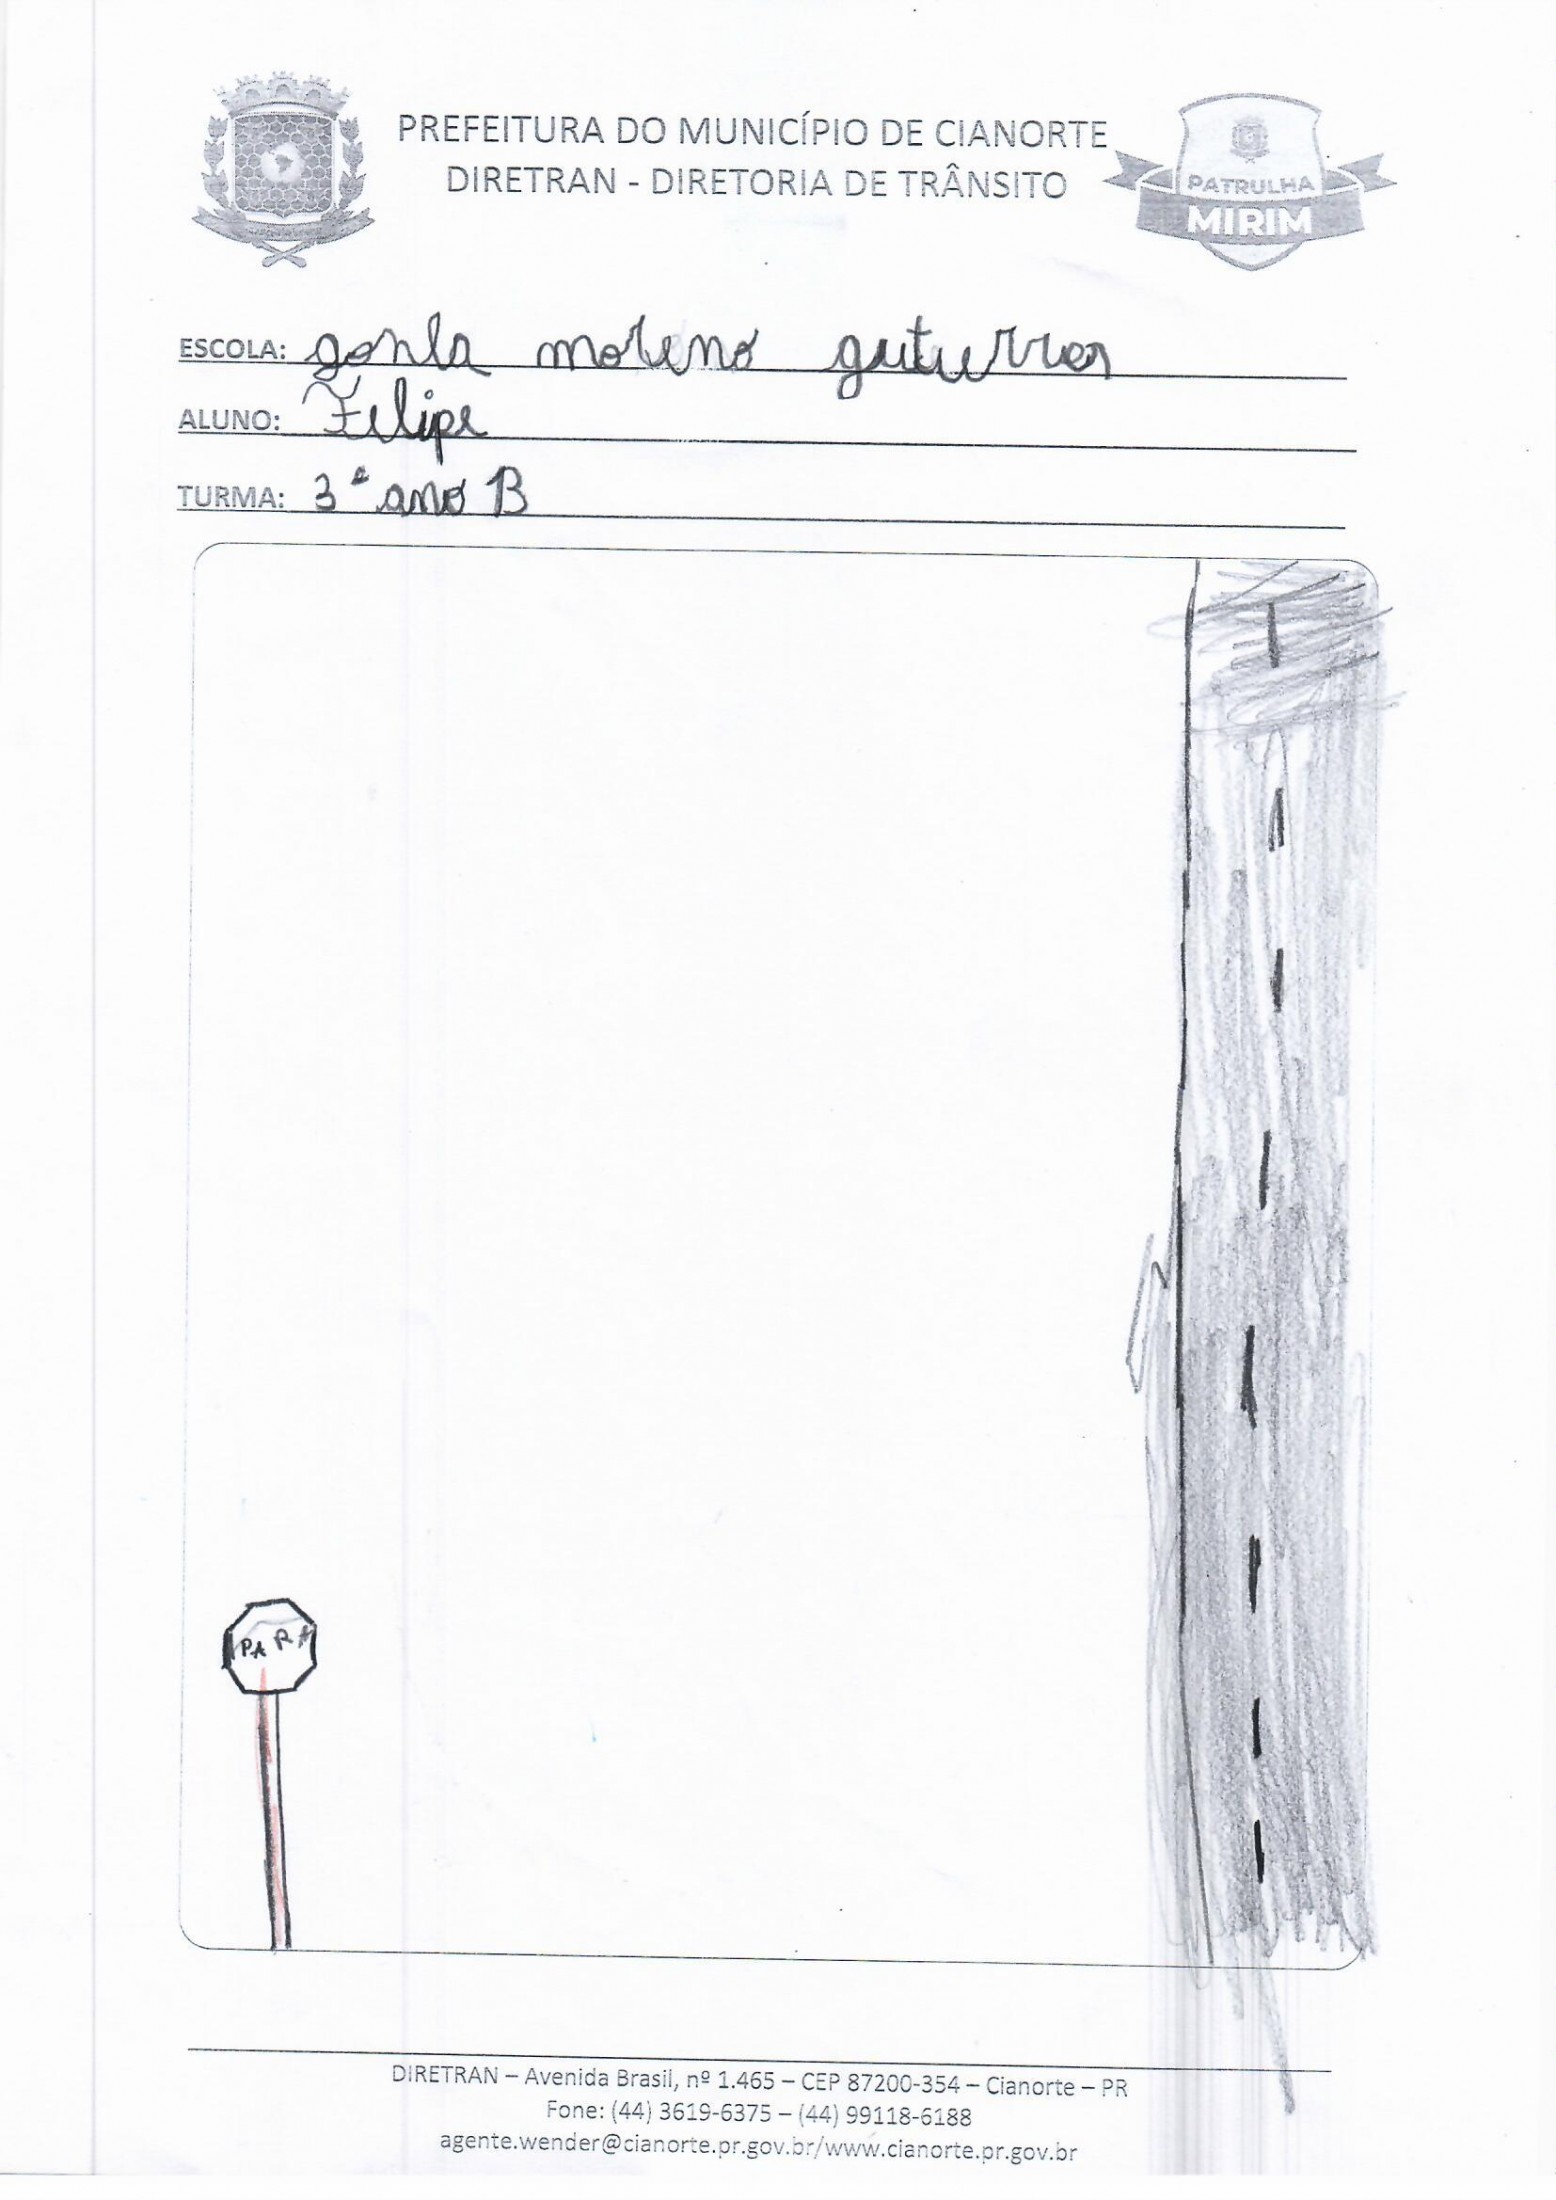 PREFEITURA DO MUNICÍPIO DE CIANORTE
DIRETRAN - DIRETORIA DE TRÂNSITO
PATRULHA
MIRIM
ESCOLA: moreno
ALUNO: Felipe
TURMA: 3º ano B
PARA
DIRETRAN – Avenida Brasil, nº 1.465 – CEP 87200-354 – Cianorte – PR
Fone: (44) 3619-6375 – (44) 99118-6188
agente.wender@cianorte.pr.gov.br/www.cianorte.pr.gov.br